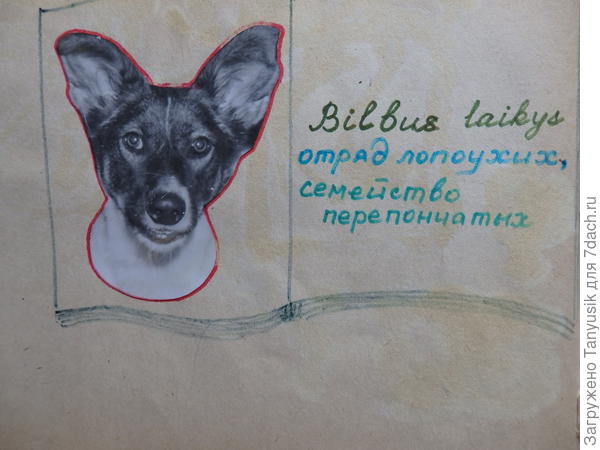 Bilbus laikys
отряд лопоухих,
семейство
перепончатых
Загружено Tanyusik для 7dach.ru